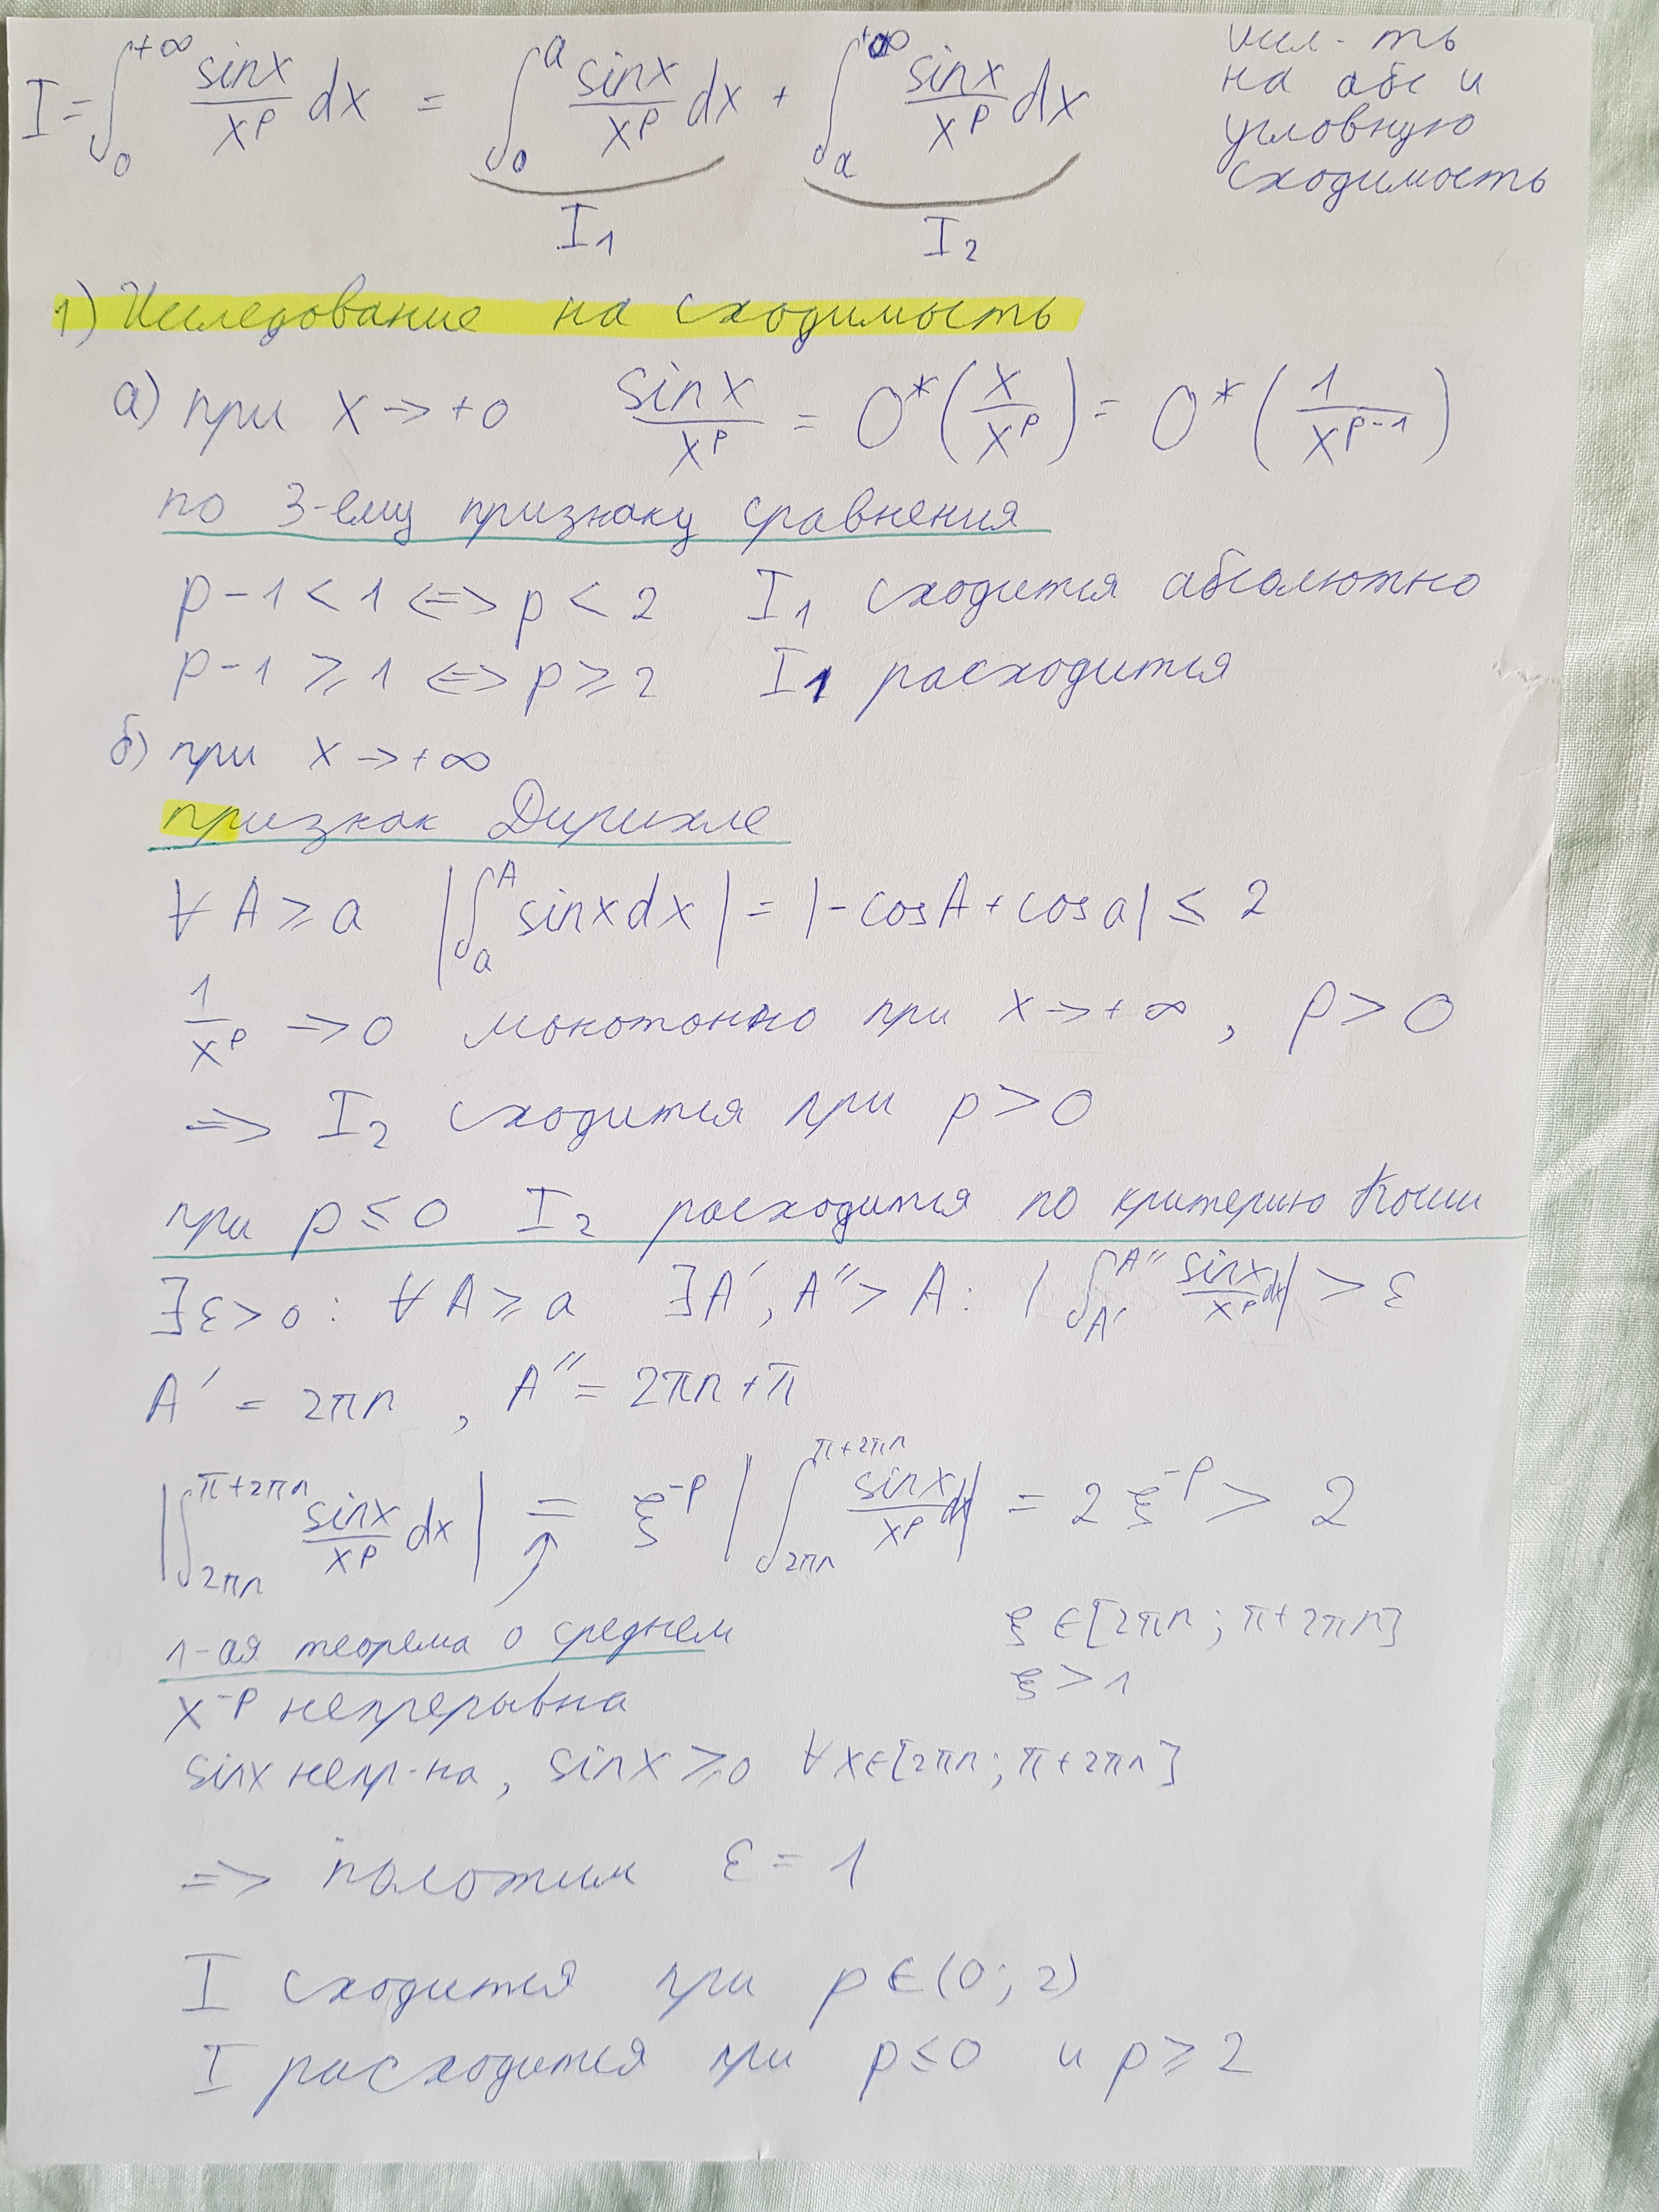 I = ∫₀^{+∞} sinx/x^p dx = ∫₀^a sinx/x^p dx + ∫_a^{+∞} sinx/x^p dx
I₁ I₂
иссл-ть
на абс и
условную
сходимость
1) Исследование на сходимость
а) при x → +0 sinx/x^p = O*(x/x^p) = O*(1/x^{p-1})
по 3-ему признаку сравнения
p-1 < 1 <=> p < 2 I₁ сходится абсолютно
p-1 ≥ 1 <=> p ≥ 2 I₁ расходится
б) при x → +∞
признак Дирихле
∀ A ≥ a |∫_a^A sinxdx| = |-cosA + cosa| ≤ 2
1/x^p → 0 монотонно при x → +∞, p > 0
=> I₂ сходится при p > 0
при p ≤ 0 I₂ расходится по критерию Коши
∃ε > 0: ∀ A ≥ a ∃A′, A″ > A: |∫_{A′}^{A″} sinx/x^p dx| > ε
A′ = 2πn, A″ = 2πn + π
|∫_{2πn}^{π+2πn} sinx/x^p dx| = ξ^{-p} |∫_{2πn}^{π+2πn} sinx/x^p dx| = 2ξ^{-p} > 2
1-ая теорема о среднем
ξ ∈ [2πn; π+2πn]
ξ > 1
x^{-p} непрерывна
sinx непр-на, sinx ≥ 0 ∀x∈[2πn; π+2πn]
=> положим ε = 1
I сходится при p ∈ (0; 2)
I расходится при p ≤ 0 и p ≥ 2